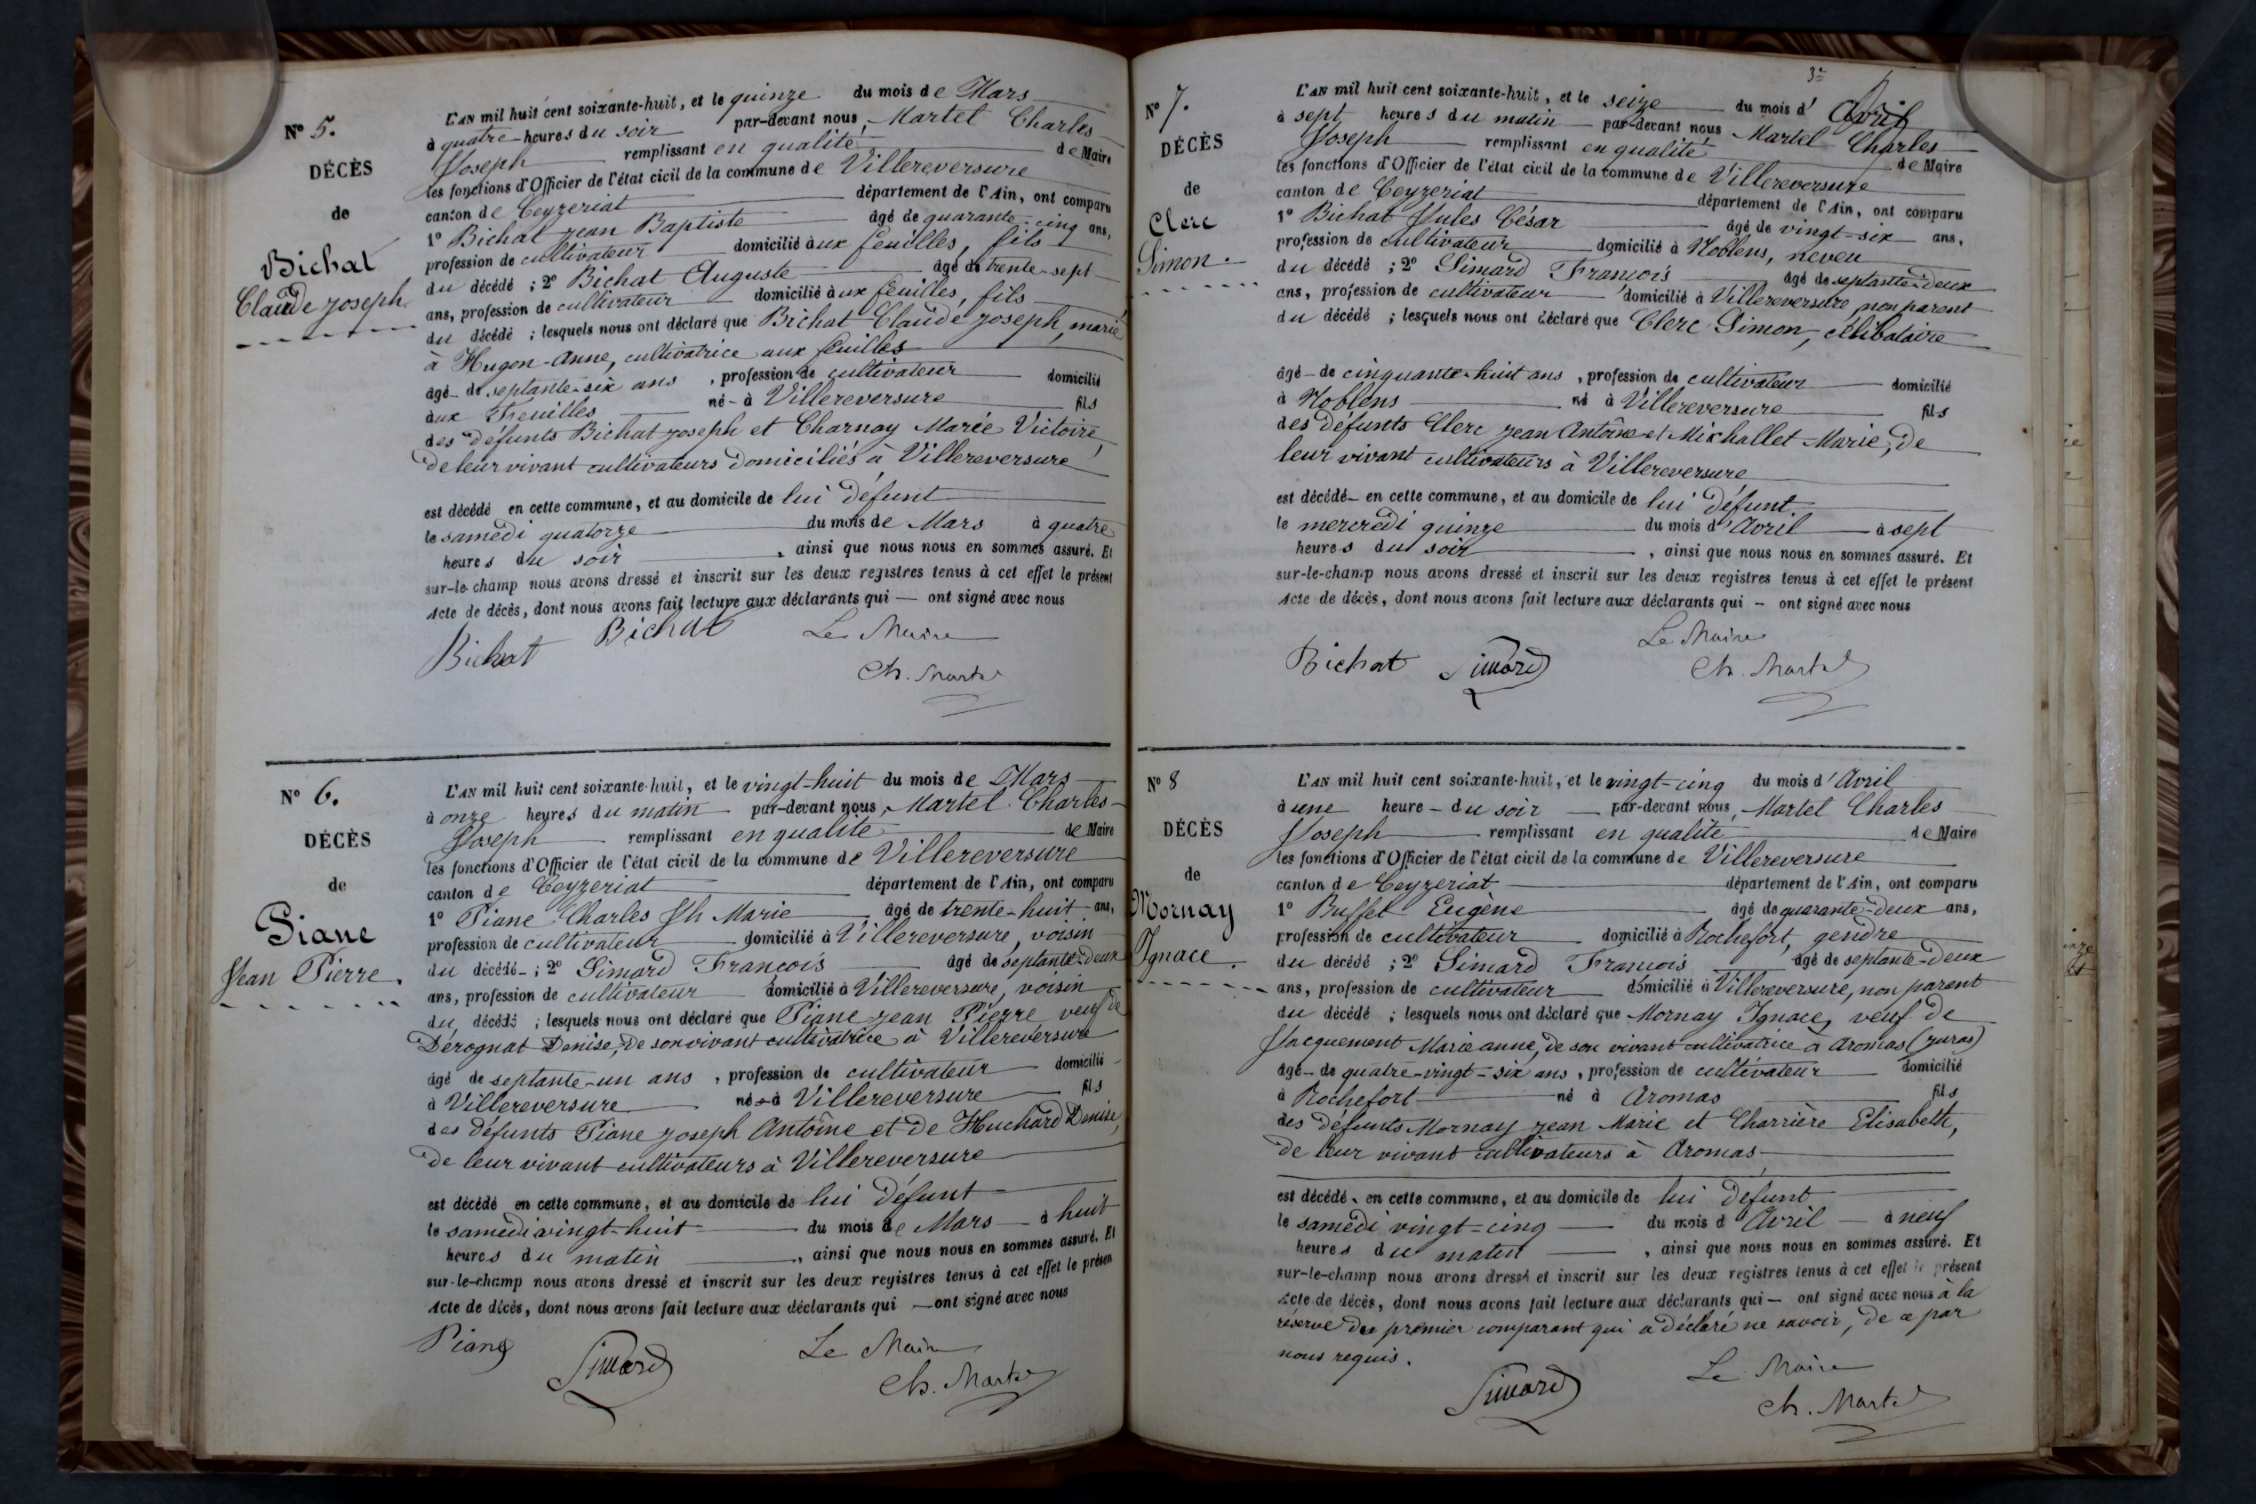 N° 5.
DÉCÈS
de
Bichat
Claude Joseph
L'AN mil huit cent soixante-huit, et le quinze du mois de Mars
à quatre heures du soir par-devant nous, Martel Charles
Joseph remplissant en qualité de Maire
les fonctions d'Officier de l'état civil de la commune de Villereversure
canton de Ceyzeriat département de l'Ain, ont comparu
1° Bichat Jean Baptiste âgé de quarante-cinq ans,
profession de cultivateur domicilié aux feuilles, fils
du décédé ; 2° Bichat Auguste âgé de trente-sept
ans, profession de cultivateur domicilié aux feuilles, fils
du décédé ; lesquels nous ont déclaré que Bichat Claude Joseph, marié
à Hugon Anne, cultivatrice aux feuilles
âgé de septante-six ans, profession de cultivateur domicilié
aux Feuilles né à Villereversure fils
des défunts Bichat Joseph et Charnay Marie Victoire,
de leur vivant cultivateurs domiciliés à Villereversure
est décédé en cette commune, et au domicile de lui défunt
le samedi quatorze du mois de Mars à quatre
heures du soir, ainsi que nous nous en sommes assuré. Et
sur-le-champ nous avons dressé et inscrit sur les deux registres tenus à cet effet le présent
Acte de décès, dont nous avons fait lecture aux déclarants qui — ont signé avec nous
Bichat Bichat Le Maire
Ch. Martel
N° 6.
DÉCÈS
de
Piane
Jean Pierre.
L'AN mil huit cent soixante-huit, et le vingt-huit du mois de Mars
à onze heures du matin par-devant nous, Martel Charles
Joseph remplissant en qualité de Maire
les fonctions d'Officier de l'état civil de la commune de Villereversure
canton de Ceyzeriat département de l'Ain, ont comparu
1° Piane Charles Jh Marie âgé de trente-huit ans,
profession de cultivateur domicilié à Villereversure, voisin
du décédé ; 2° Simard François âgé de septante-deux
ans, profession de cultivateur domicilié à Villereversure, voisin
du décédé ; lesquels nous ont déclaré que Piane Jean Pierre veuf de
Dérognat Denise, de son vivant cultivatrice à Villereversure
âgé de septante-un ans, profession de cultivateur domicilié
à Villereversure né à Villereversure fils
des défunts Piane Joseph Antoine et de Huchard Denise,
de leur vivant cultivateurs à Villereversure
est décédé en cette commune, et au domicile de lui défunt
le samedi vingt-huit du mois de Mars à huit
heures du matin, ainsi que nous nous en sommes assuré. Et
sur-le-champ nous avons dressé et inscrit sur les deux registres tenus à cet effet le présen
Acte de décès, dont nous avons fait lecture aux déclarants qui — ont signé avec nous
Piane Simard Le Maire
Ch. Martel
N° 7.
DÉCÈS
de
Clerc
Simon.
L'AN mil huit cent soixante-huit, et le seize du mois d'Avril
à sept heures du matin par-devant nous Martel Charles
Joseph remplissant en qualité de Maire
les fonctions d'Officier de l'état civil de la commune de Villereversure
canton de Ceyzeriat département de l'Ain, ont comparu
1° Bichat Jules César âgé de vingt-six ans,
profession de cultivateur domicilié à Noblens, neveu
du décédé ; 2° Simard François âgé de septante-deux
ans, profession de cultivateur domicilié à Villereversure, non parent
du décédé ; lesquels nous ont déclaré que Clerc Simon, célibataire
âgé de cinquante-huit ans, profession de cultivateur domicilié
à Noblens né à Villereversure fils
des défunts Clerc Jean Antoine et Michallet Marie, de
leur vivant cultivateurs à Villereversure
est décédé en cette commune, et au domicile de lui défunt
le mercredi quinze du mois d'Avril à sept
heures du soir, ainsi que nous nous en sommes assuré. Et
sur-le-champ nous avons dressé et inscrit sur les deux registres tenus à cet effet le présent
Acte de décès, dont nous avons fait lecture aux déclarants qui — ont signé avec nous
Bichat Simard Le Maire
Ch. Martel
N° 8
DÉCÈS
de
Mornay
Ignace.
L'AN mil huit cent soixante-huit, et le vingt-cinq du mois d'Avril
à une heure du soir par-devant nous, Martel Charles
Joseph remplissant en qualité de Maire
les fonctions d'Officier de l'état civil de la commune de Villereversure
canton de Ceyzeriat département de l'Ain, ont comparu
1° Buffet Eugène âgé de quarante-deux ans,
profession de cultivateur domicilié à Rochefort, gendre
du décédé ; 2° Simard François âgé de septante-deux
ans, profession de cultivateur domicilié à Villereversure, non parent
du décédé ; lesquels nous ont déclaré que Mornay Ignace, veuf de
Jacquement Marie anne, de son vivant cultivatrice à Aromas (Juras)
âgé de quatre-vingt-six ans, profession de cultivateur domicilié
à Rochefort né à Aromas fils
des défunts Mornay Jean Marie et Charrière Elisabeth,
de leur vivant cultivateurs à Aromas
est décédé en cette commune, et au domicile de lui défunt
le samedi vingt-cinq du mois d'Avril à neuf
heures du matin, ainsi que nous nous en sommes assuré. Et
sur-le-champ nous avons dressé et inscrit sur les deux registres tenus à cet effet le présent
Acte de décès, dont nous avons fait lecture aux déclarants qui — ont signé avec nous à la
réserve du premier comparant qui a déclaré ne savoir, de ce par
nous requis.
Simard Le Maire
Ch. Martel